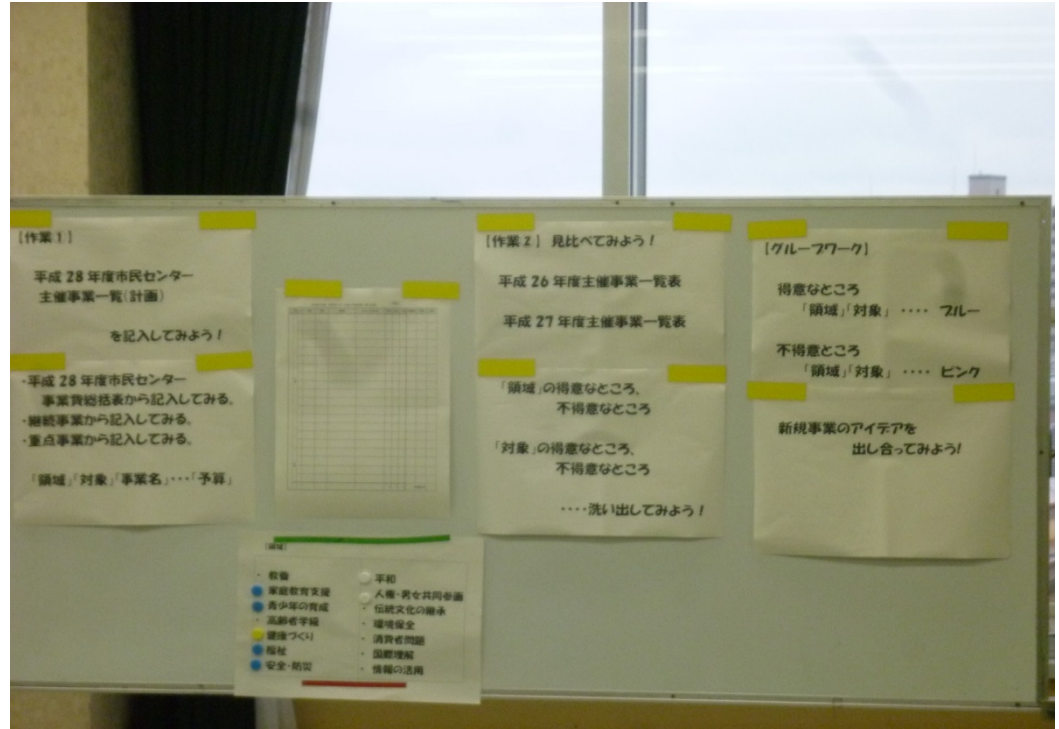 【作業1】
平成28年度市民センター
主催事業一覧(計画)
を記入してみよう！
・平成28年度市民センター
事業費総括表から記入してみる。
・継続事業から記入してみる。
・重点事業から記入してみる。
「領域」「対象」「事業名」・・・「予算」
【作業2】 見比べてみよう！
平成26年度主催事業一覧表
平成27年度主催事業一覧表
「領域」の得意なところ、
不得意なところ
「対象」の得意なところ、
不得意なところ
・・・・洗い出してみよう！
【グループワーク】
得意なところ
「領域」「対象」 ・・・・ ブルー
不得意ところ
「領域」「対象」 ・・・・ ピンク
新規事業のアイデアを
出し合ってみよう!
【領域】
・ 教養
家庭教育支援
青少年の育成
・ 高齢者学級
健康づくり
福祉
安全・防災
平和
人権・男女共同参画
・ 伝統文化の継承
・ 環境保全
・ 消費者問題
・ 国際理解
・ 情報の活用